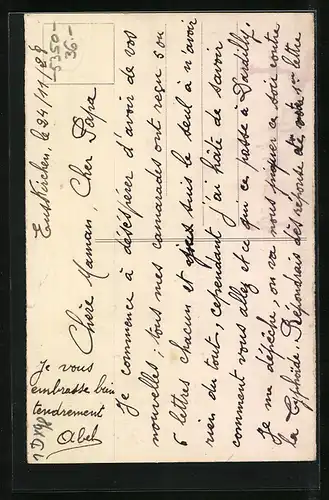 Euskirchen, le 24/11/28
5350-
36.-
Chère Maman, Cher Papa
Je commence à désespérer d'avoir de vos
nouvelles; tous mes camarades ont reçu 5 ou
6 lettres chacun et suis le seul à n'avoir
rien du tout, cependant j'ai hâte de savoir
comment vous allez et ce qui ce passe à Dardilly.
Je me dépêche, on va nous piquer ce soir contre
la typhoïde. Répondrais dès réponse de votre 1ère lettre
Je vous
embrasse bien
tendrement
Abel